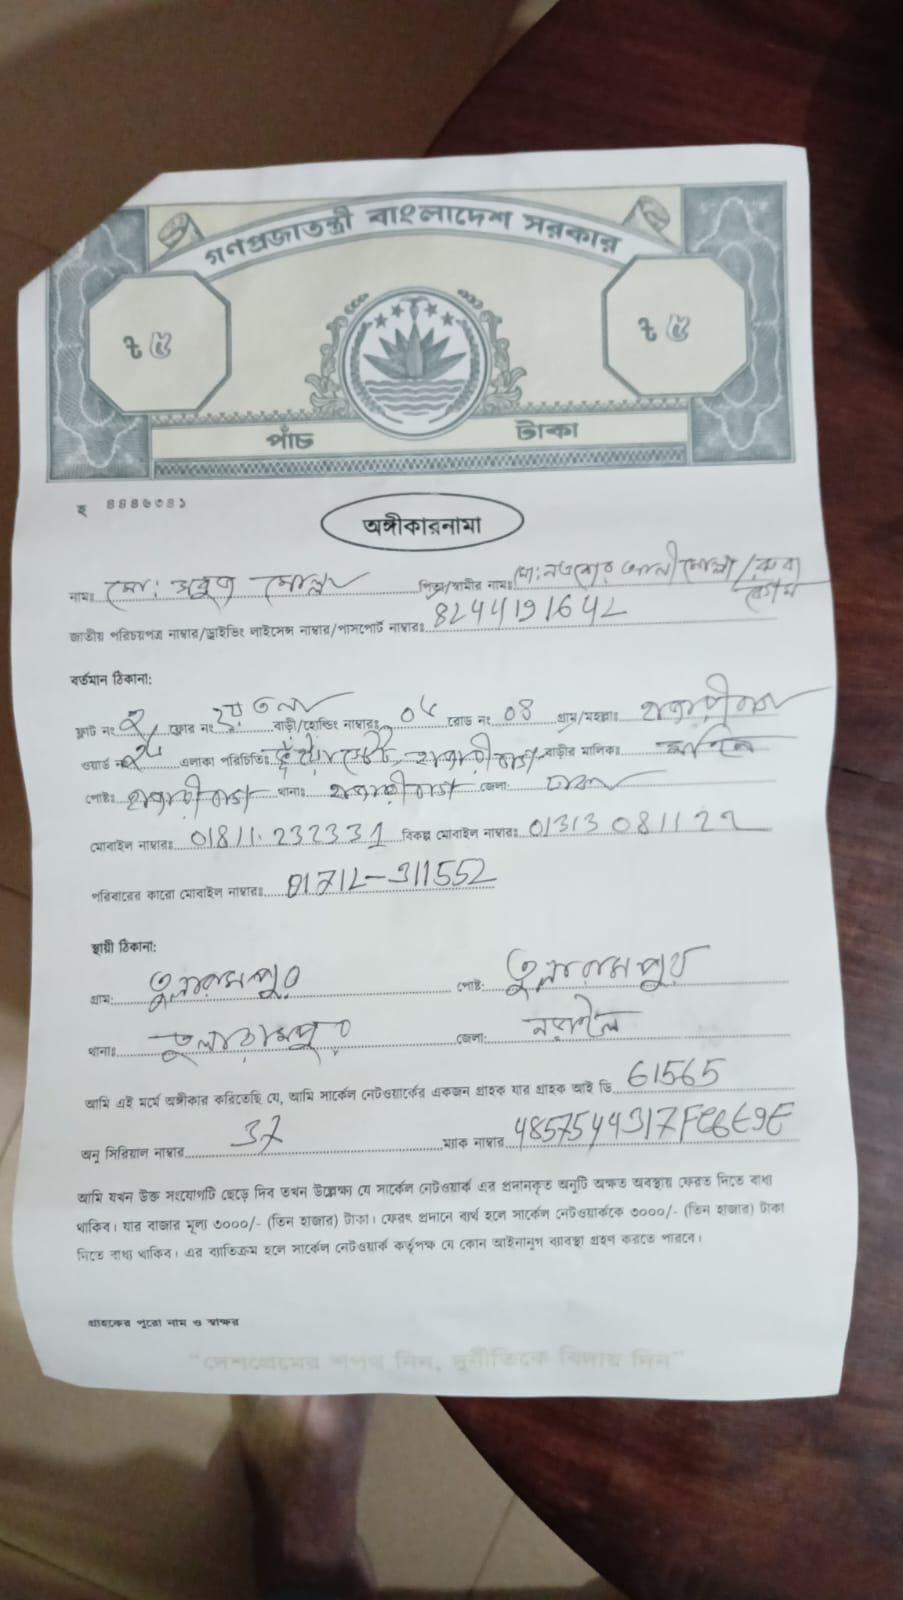 গণপ্রজাতন্ত্রী বাংলাদেশ সরকার
৳ ৫ ৳ ৫
পাঁচ টাকা
হ ৪৪৪৬৩৪১
অঙ্গীকারনামা
নামঃ মো: মোল্লা পিতা/স্বামীর নামঃ মো: আলী মোল্লা /
জাতীয় পরিচয়পত্র নাম্বার/ড্রাইভিং লাইসেন্স নাম্বার/পাসপোর্ট নাম্বারঃ 8244191642
বর্তমান ঠিকানা:
ফ্লাট নং ২ ফ্লোর নং ২য় তলা বাড়ী/হোল্ডিং নাম্বারঃ 04 রোড নং 08 গ্রাম/মহল্লাঃ
ওয়ার্ড নং এলাকা পরিচিতিঃ বাড়ীর মালিকঃ
পোষ্টঃ থানাঃ জেলা: ঢাকা
মোবাইল নাম্বারঃ 01811-232331 বিকল্প মোবাইল নাম্বারঃ 01313 081122
পরিবারের কারো মোবাইল নাম্বারঃ 01712-911552
স্থায়ী ঠিকানা:
গ্রাম: তুলারামপুর পোষ্ট: তুলারামপুর
থানাঃ তুলারামপুর জেলা: নড়াইল
আমি এই মর্মে অঙ্গীকার করিতেছি যে, আমি সার্কেল নেটওয়ার্কের একজন গ্রাহক যার গ্রাহক আই ডি 61565
অনু সিরিয়াল নাম্বার 37 ম্যাক নাম্বার
আমি যখন উক্ত সংযোগটি ছেড়ে দিব তখন উল্লেক্ষা যে সার্কেল নেটওয়ার্ক এর প্রদানকৃত অনুটি অক্ষত অবস্থায় ফেরত দিতে বাধ্য
থাকিব। যার বাজার মূল্য ৩০০০/- (তিন হাজার) টাকা। ফেরৎ প্রদানে ব্যর্থ হলে সার্কেল নেটওয়ার্ককে ৩০০০/- (তিন হাজার) টাকা
দিতে বাধ্য থাকিব। এর ব্যতিক্রম হলে সার্কেল নেটওয়ার্ক কর্তৃপক্ষ যে কোন আইনানুগ ব্যবস্থা গ্রহণ করতে পারবে।
গ্রাহকের পুরো নাম ও স্বাক্ষর
"দেশপ্রেমের শপথ নিন, দুর্নীতিকে বিদায় দিন"